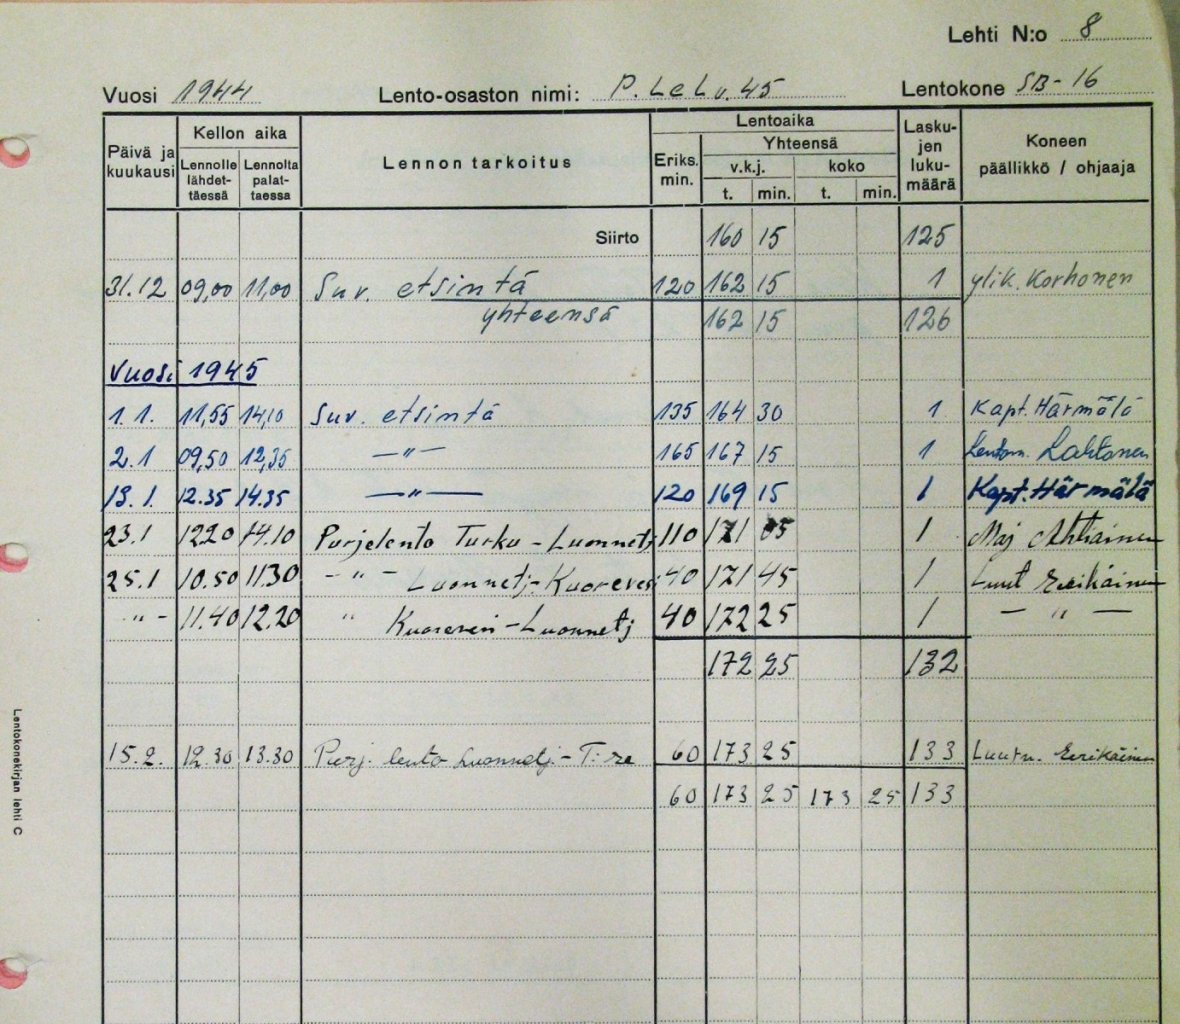 Lehti N:o 8
Vuosi 1944 Lento-osaston nimi: P. LeLv. 45 Lentokone SB-16
Päivä ja kuukausi Kellon aika Lennolle lähdettäessä Lennolta palattaessa Lennon tarkoitus Lentoaika Eriks. min. Yhteensä v.k.j. t. min. koko t. min. Laskujen lukumäärä Koneen päällikkö / ohjaaja
Siirto 160 15 125
31.12 09,00 11,00 Suv. etsintä 120 162 15 1 ylik. Korhonen
yhteensä 162 15 126
Vuosi 1945
1.1. 11,55 14,10 Suv. etsintä 135 164 30 1 Kapt. Härmälä
2.1 09,50 12,35 —"— 165 167 15 1 Lentom. Lahtonen
13.1. 12.35 14.35 —"— 120 169 15 1 Kapt. Härmälä
23.1 1220 14.10 Purjelento Turku - Luonnetj 110 171 05 1 Maj Ahtiainen
25.1 10.50 11.30 -"- Luonnetj-Kuorevesi 40 171 45 1 Luut Eerikäinen
"- 11.40 12.20 " Kuorevesi-Luonnetj 40 172 25 1 —"—
172 25 132
15.2. 12.30 13.30 Purj. lento Luonnetj.- T:re 60 173 25 133 Luutn. Eerikäinen
60 173 25 173 25 133
Lentokonekirjan lehti C